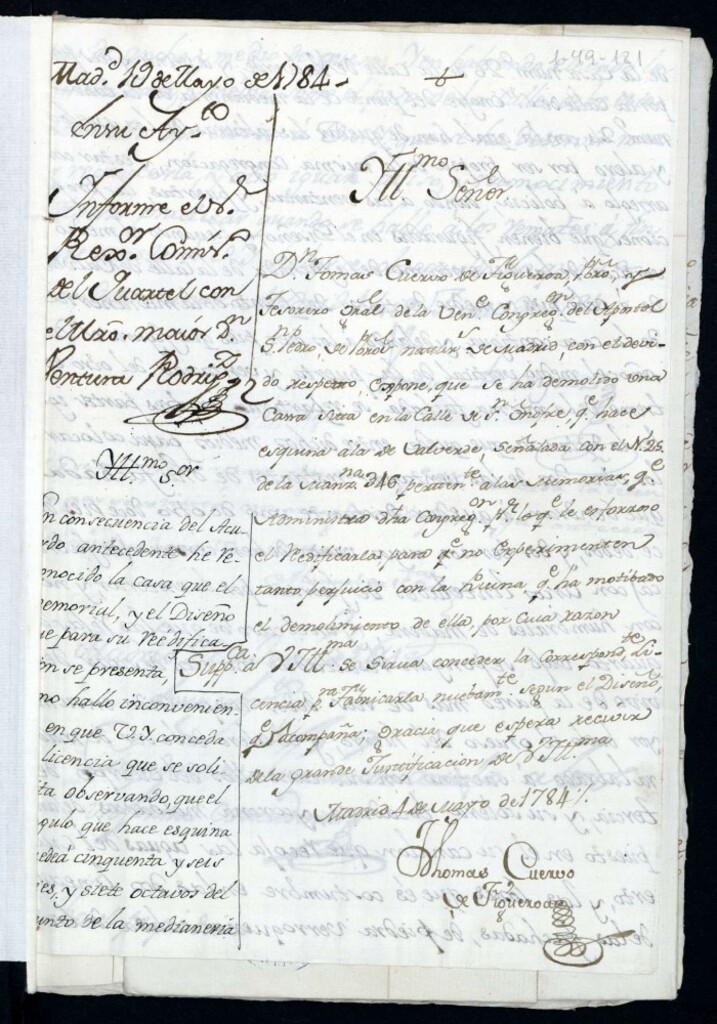 1-49-121
Mad.d 19 de Mayo de 1784.
En su Ay.to
Informe el S.r
Rex.or Comis.o
del Quartel con
el Mro. maior D.n
Ventura Rodrig.z
Yll.mo S.or
n consecuencia del Acu-
do antecedente he re-
nocido la casa que el
emorial, y el Diseño
ue para su reedifica-
n se presenta,
no hallo inconvenien-
en que V.Y. conceda
licencia que se soli-
ta observando, que el
gulo que hace esquina
cinquenta y seis
es, y siete octavos del
unto de la medianeria
Yll.mo Señor
D.n Tomas Cuervo de Figueroa, Pbro, y
Tesorero Gral de la Ven.e Congreg.on del Apostol
S. Pedro, de Pbros. natur.s de Madrid, con el devi-
do respetto, expone, que se ha demolido una
Cassa sita en la Calle de S.n Onofre, q.e hace
esquina a la de Valverde, señalada con el N.º 25.
de la Manz.na 346 pertten.te a las Memorias, q.e
Administra dha Congreg.on y q.e le es forzoso
el Redificarla para q.e no experimenten
tanto perjuicio con la Ruina q.e ha motibado
el demolimiento de ella, por cuia razon
Supp.ca a V.Ill.ma se sirva conceder la correspond.te Li-
cencia p.a fabricarla nuebam.te segun el Diseño,
q.e acompaña: Gracia que espera recivir
de la grande Justificacion de V.Ill.ma
Madrid 4 de Mayo de 1784.
Thomas Cuervo
de Figueroa